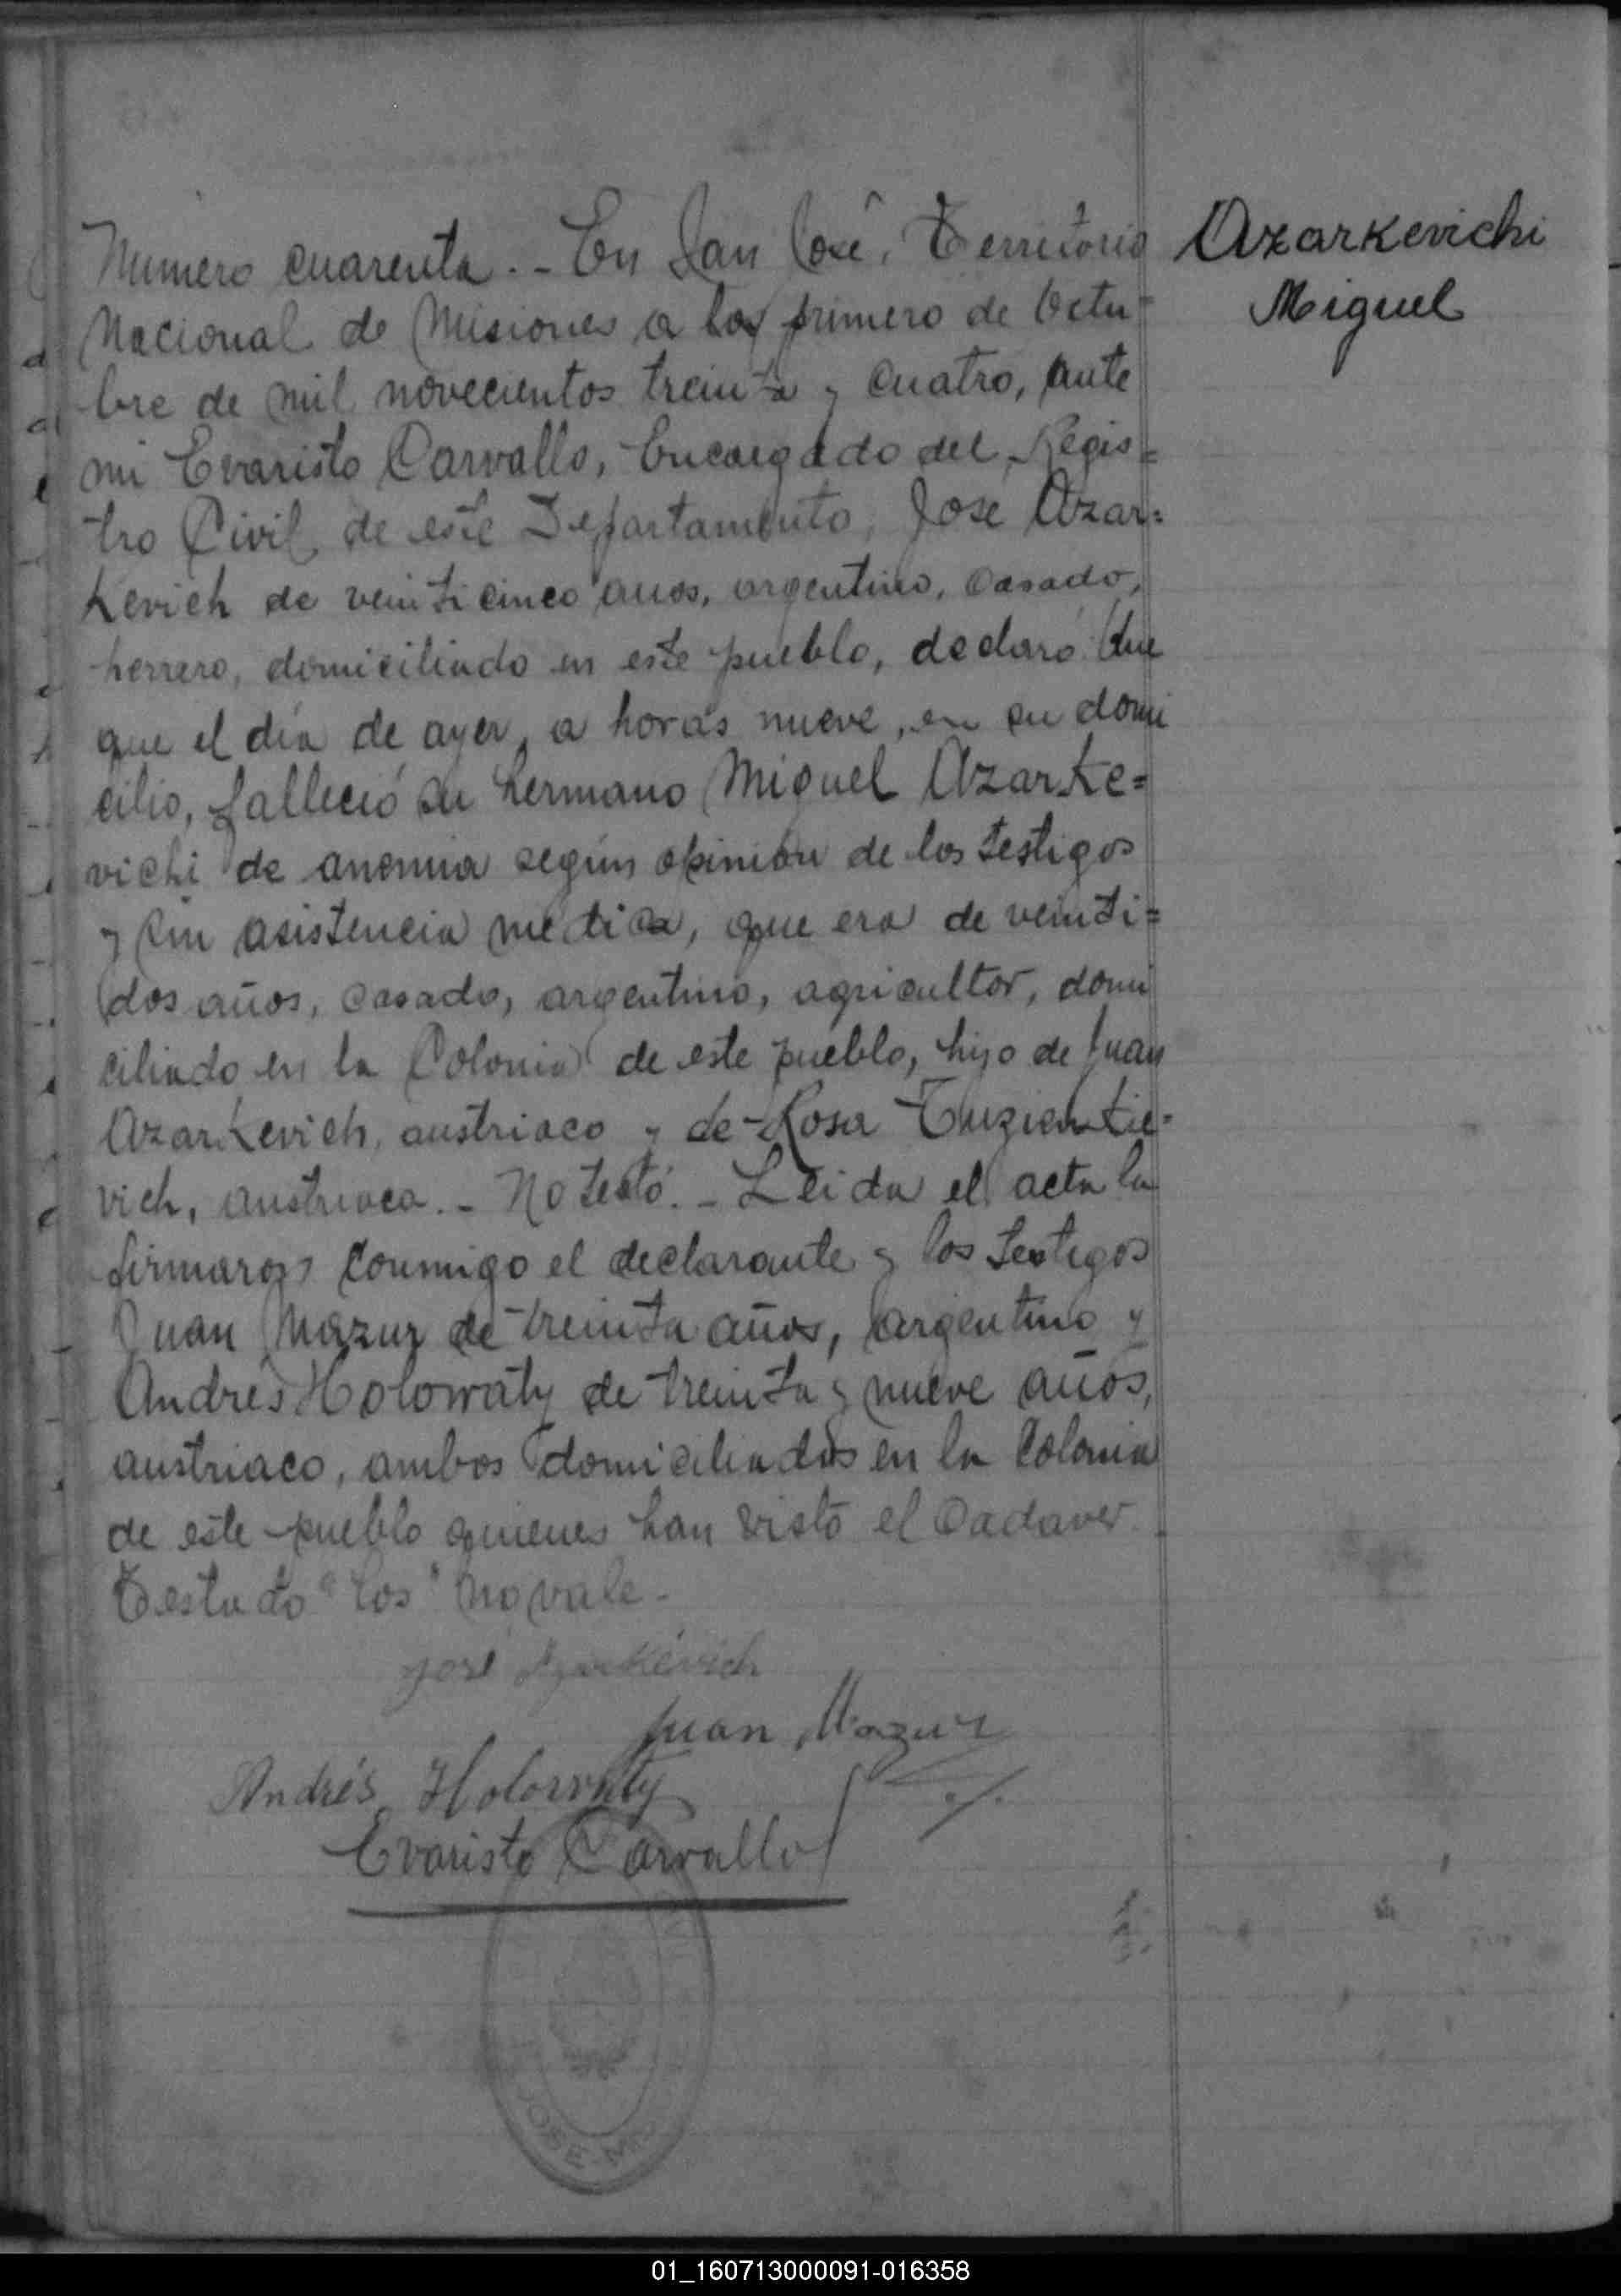 Numero cuarenta. - En San José, Territorio
Nacional de Misiones a los primero de Octu-
bre de mil novecientos treinta y cuatro, ante
mi Evaristo Carvallo, Encargado del Regis=
tro Civil de este Departamento, José Azar=
kevich de veinticinco años, argentino, casado,
herrero, domiciliado en este pueblo, declaró: Que
que el día de ayer, a horas nueve, en su domi
cilio, falleció su hermano Miguel Azarke=
vichi de anemia según opinión de los testigos
y sin asistencia medica, que era de veinti=
dos años, casado, argentino, agricultor, domi
ciliado en la Colonia de este pueblo, hijo de Juan
Azarkevich, austriaco y de Rosa
vich, austriaca. - No testó. - Leida el acta la
firmaron conmigo el declarante y los testigos
Juan Mazur de treinta años, argentino y
Andrés Holowaty de treinta y nueve años,
austriaco, ambos domiciliados en la Colonia
de este pueblo quienes han visto el cadaver.
Testado "los" no vale.-
José Azarkévich
Juan Mazur
Andrés Holowaty
Evaristo Carvallo
Azarkevichi
Miguel
JOSE-MI
01_160713000091-016358